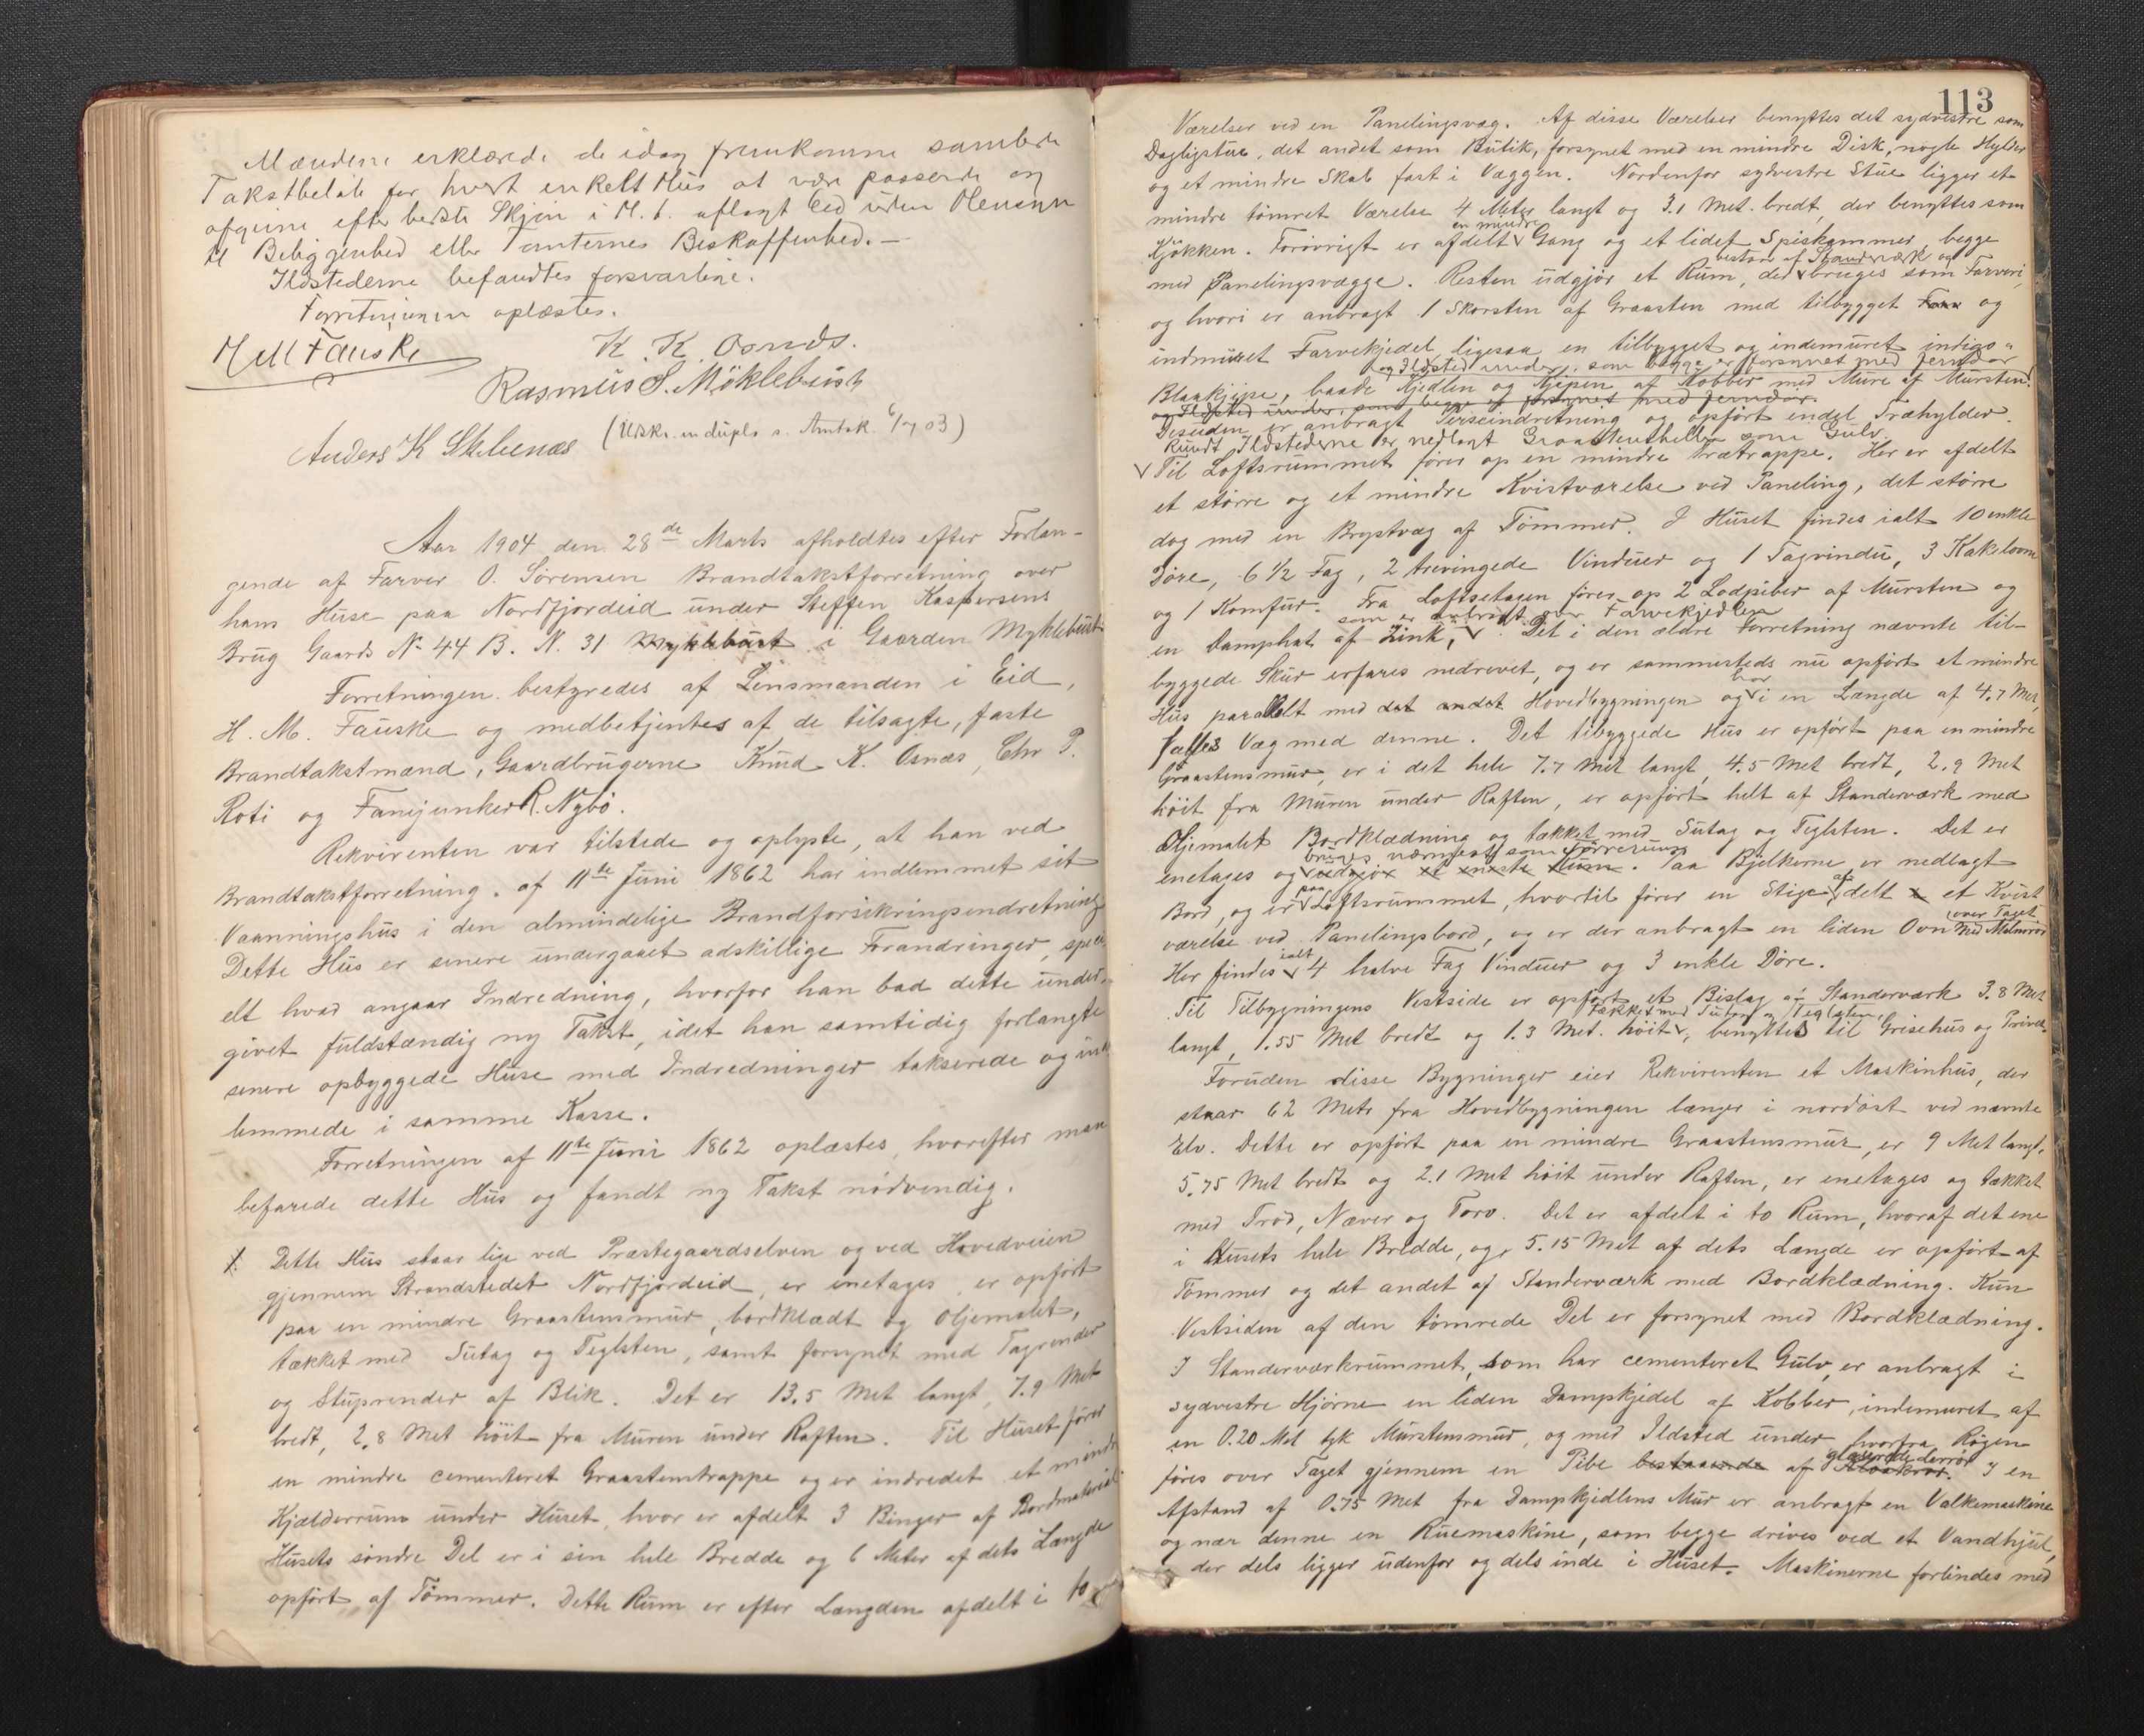 Mændene erklærede de idag fremkomne samlede
Takstbeløb for hvert enkelt Hus at være passende og
afgivne efter bedste Skjøn i H. t. aflagt Ed uden Hensyn
til Beliggenhed eller Tomternes Beskaffenhed. —
Ildstederne befandtes forsvarlige.
Forretningen oplæstes.
H M Fauske K. K. Osnæs.
Rasmus S. Möklebust
Anders K (Udskr. in duplo s. Amtsk. 6/7 03)
Aar 1904 den 28de Marts afholdtes efter Forlan-
gende af Farver O. Sørensen Brandtakstforretning over
hans Huse paa Nordfjordeid under Steffen Kaspersens
Brug Gaards No 44 B. N. 31 Myklebust i Gaarden Myklebust
Forretningen bestyredes af Lensmanden i Eid,
H. M. Fauske og medbetjentes af de tilsagte, faste
Brandtakstmænd, Gaardbrugerne Knud K. Osnæs, Chr P.
Roti og Fanejunker R. Nybö.
Rekvirenten var tilstede og oplyste, at han ved
Brandtakstforretning af 11te Juni 1862 har indlemmet sit
Vaaningshus i den almindelige Brandforsikringsindretning
Dette Hus er senere undergaaet adskillige Forandringer, speci-
elt hvad angaar Indredning, hvorfor han bad dette under-
givet fuldstændig ny Takst, idet han samtidig forlangte
senere opbyggede Huse med Indredninger takserede og ind-
lemmede i samme Kasse.
Forretningen af 11te Juni 1862 oplæstes, hvorefter man
befarede dette Hus og fandt ny Takst nödvendig.
1. Dette Hus staar lige ved Præstegaardselven og ved Hovedveien
gjennem Strandstedet Nordfjordeid, er enetages, er opfört
paa en mindre Graastensmur, bordklædt og Oljemalet,
tækket med Sutag og Teglsten, samt forsynet med Tagrender
og Stuprender af Blik. Det er 13.5 Met langt, 7.9 Met
bredt, 2.8 Met höit fra Muren under Raften. Til Huset förer
en mindre cementeret Graastenstrappe og er indredet et mindre
Kjælderrum under Huset, hvor er afdelt 3 Binger af Bordmateriale
Husets söndre Del er i sin hele Bredde og 6 Meter af dets Længde
opfört af Tömmer. Dette Rum er efter Længden afdelt i to
113
Værelser ved en Panelingsvæg. Af disse Værelser benyttes det sydvestre som
Dagligstue, det andet som Butik, forsynet med en mindre Disk, nogle Hylder
og et mindre Skab fast i Væggen. Nordenfor sydvestre Stue ligger et
mindre tömret Værelse 4 Meter langt og 3.1 Met. bredt, der benyttes som
en mindre
Kjökken. Forövrigt er afdelt Gang og et lidet Spiskammer, begge
bestaar af Standerværk og
med Panelingsvægge. Resten udgjör et Rum, der bruges som Farveri,
og hvori er anbragt 1 Skorsten af Graasten med tilbygget og
indmuret Farvekjedel, ligesaa en tilbygget og indemuret indigo-
og Ildsted under, som begge er forsynet med Jerndör
Blaakjype, baade Kjedlen og Kjypen af Kobber med Mure af Mursten
og Ildsted under, som begge er forsynet med Jerndör.
Desuden er anbragt Perseindretning og opfört endel Træhylder.
Rundt Ildstederne er nedlagt Graastenheller som Gulv.
Til Loftsrummet förer op en mindre Trætrappe. Her er afdelt
et större og et mindre Kvistværelse ved Paneling, det större
dog med en Brystvæg af Tömmer. I Huset findes ialt 10 enkle
Döre, 6 1/2 Fag, 2 trevingede Vinduer og 1 Tagvindu, 3 Kakelovne
og 1 Komfur. Fra Loftsetagen förer op 2 Lodpiber af Mursten og
som er anbragt over Farvekjedlen
en Damphat af Zink, Det i den ældre Forretning nævnte til-
byggede Skur erfares nedrevet, og er sammesteds nu opfört et mindre
har
Hus parallelt med det andet Hovedbygningen og i en Længde af 4.7 Met,
fælles Væg med denne. Det tilbyggede Hus er opfört paa en mindre
Graastensmur, er i det hele 7.7 Met langt, 4.5 Met bredt, 2.9 Met
höit fra Muren under Raften, er opfört helt af Standerværk med
Oljemalet Bordklædning og tækket med Sutag og Teglsten. Det er
bruges nærmest som Törrerum
enetages og udgjör et eneste Rum. Paa Bjelkerne er nedlagt
paa af
Bord, og er Loftsrummet, hvortil förer en Stige, delt et Kvist
over Taget
værelse ved Panelingsbord, og er der anbragt en liden Ovn med
ialt
Her findes 4 halve Fag Vinduer og 3 enkle Döre.
Til Tilbygningens Vestside er opfört et Bislag af Standerværk 3.8 Met
tækket med Sutag og Teglsten,
langt, 1.55 Met bredt og 1.3 Met. höit, benyttes til Grisehus og Privet.
Foruden disse Bygninger eier Rekvirenten et Maskinhus, der
staar 62 Metr fra Hovedbygningen længer i nordöst ved nævnte
Elv. Dette er opfört paa en mindre Graastensmur, er 9 Met langt,
5.75 Met bredt og 2.1 Met höit under Raften, er enetages og tækket
med Trod, Næver og Torv. Det er afdelt i to Rum, hvoraf det ene
i Husets hele Bredde, og 5.15 Met af dets Længde er opfört af
Tömmer og det andet af Standerværk med Bordklædning. Kun
Vestsiden af den tömrede Del er forsynet med Bordklædning.
I Standerværkrummet, som har cementeret Gulv, er anbragt i
sydvestre Hjörne en liden Dampkjedel af Kobber, indemuret af
en 0.20 Met tyk Murstensmur, og med Ildsted under, hvorfra Rögen
glaserede lerrör
föres over Taget gjennem en Pibe bestaaende af Kloakrör. I en
Afstand af 0.75 Met fra Dampkjedlens Mur er anbragt en Valkemaskine
og nær denne en Ruemaskine, som begge drives ved et Vandhjul,
der dels ligger udenfor og dels inde i Huset. Maskinerne forbindes med